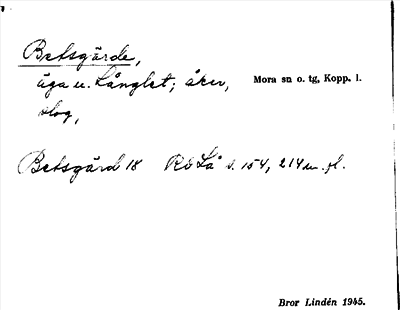 Betsgärde,
äga u. Långlet; åker, Mora sn o. tg, Kopp. l.
skog,
Betsgärd 18 RöLå s. 154, 214 m. fl.
Bror Lindén 1945.